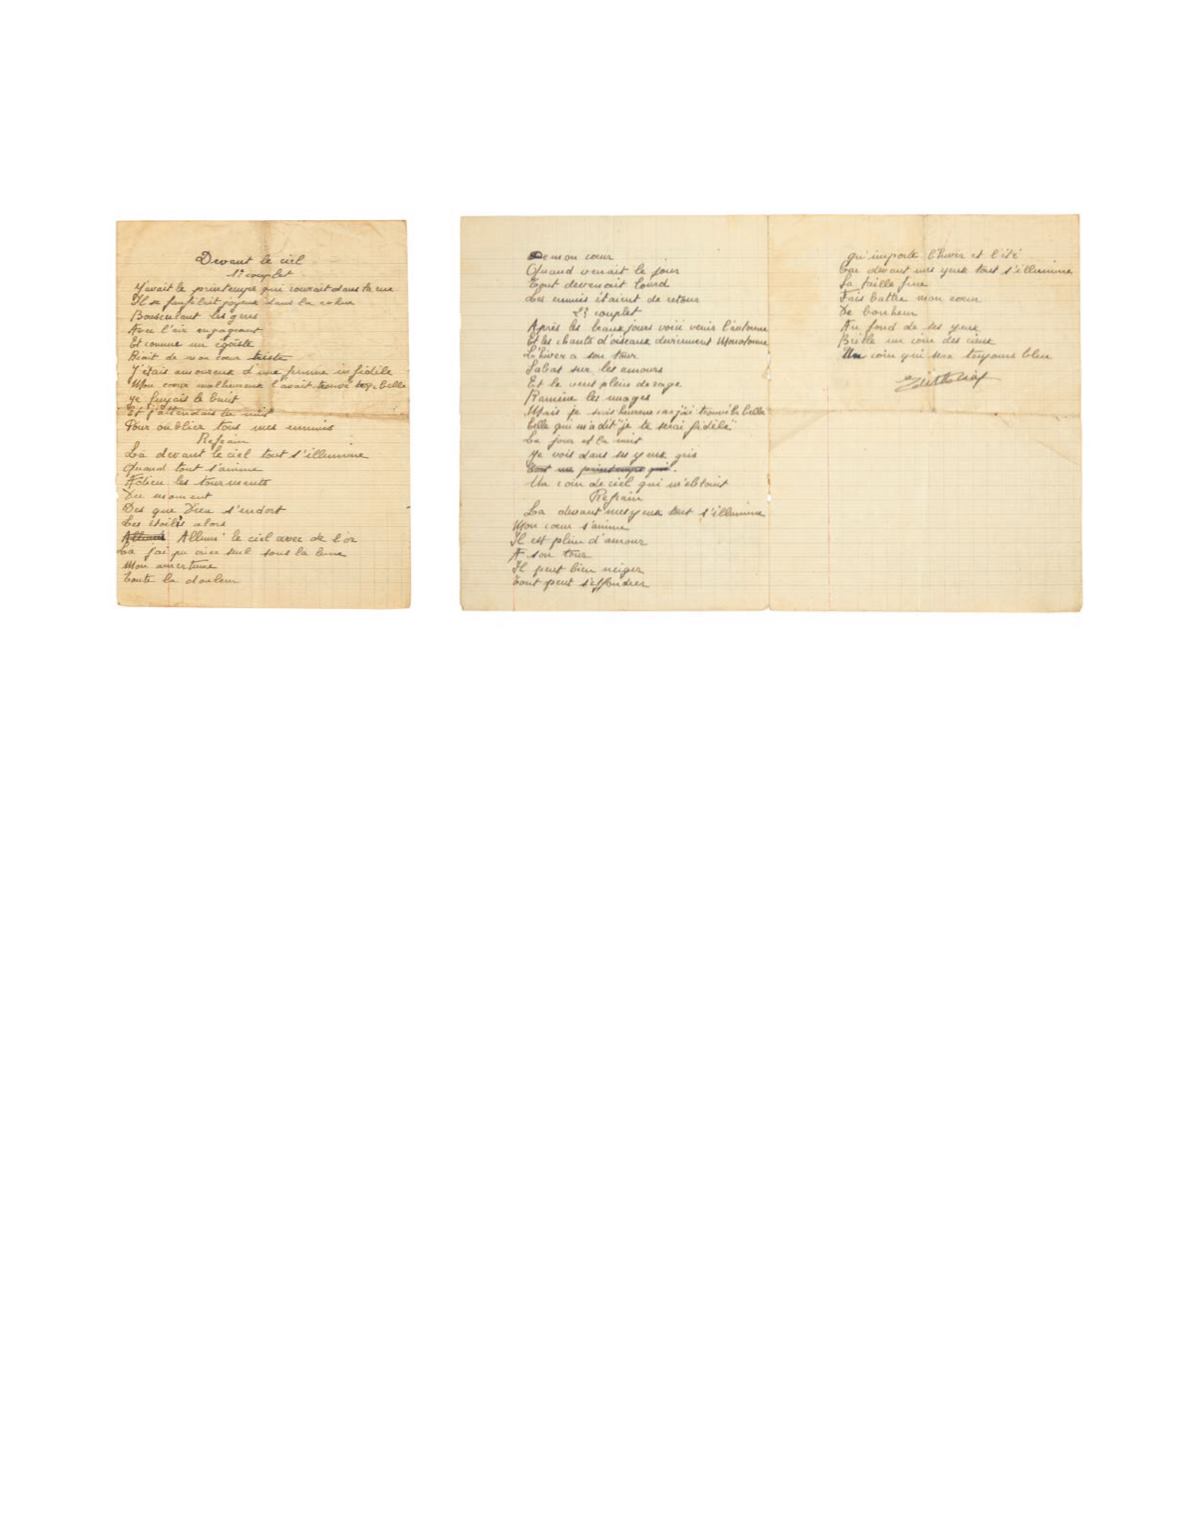 Devant le ciel
1º couplet
Y'avait le printemps qui courait dans la rue
Il se faufilait joyeux dans la cohue
Bousculant les gens
Avec l'air engageant
Et comme un égoïste
Riait de mon cœur triste
J'étais amoureux d'une femme infidèle
Mon cœur malheureux l'avait trouvé trop belle
Je fuyais le bruit
Et j'attendais la nuit
Pour oublier tous mes ennuis
Refrain
Là devant le ciel tout s'illumine
Quand tout s'anime
Adieu les tourments
Du moment
Des que Dieu s'endort
Les étoiles alors
Allume le ciel avec de l'or
Là j'ai pu crier seul sous la lune
Mon amertume
Toute la douleur
De mon cœur
Quand venait le jour
Tout devenait lourd
Les ennuis étaient de retour
2º couplet
Après les beaux jours voici venir l'automne
Et les chants d'oiseaux deviennent monotone
L'hiver a son tour
S'abat sur les amours
Et le vent plein de rage
Ramène les nuages
Mais je suis heureux car j'ai trouvé la belle
Celle qui m'a dit "je te serai fidèle"
Le jour et la nuit
Je vois dans ses yeux gris
Tout un printemps qui
Un coin de ciel qui
Refrain
Là devant mes yeux tout s'illumine
Mon cœur s'anime
Il est plein d'amour
A son tour
Il peut bien neiger
Tout peut s'effondrer
qu'importe l'hiver et l'été
Car devant mes yeux tout s'illumine
Sa taille fine
Fais battre mon cœur
De bonheur
Au fond de ses yeux
Brille un coin des cieux
Un coin qui sera toujours bleu
Edith Piaf